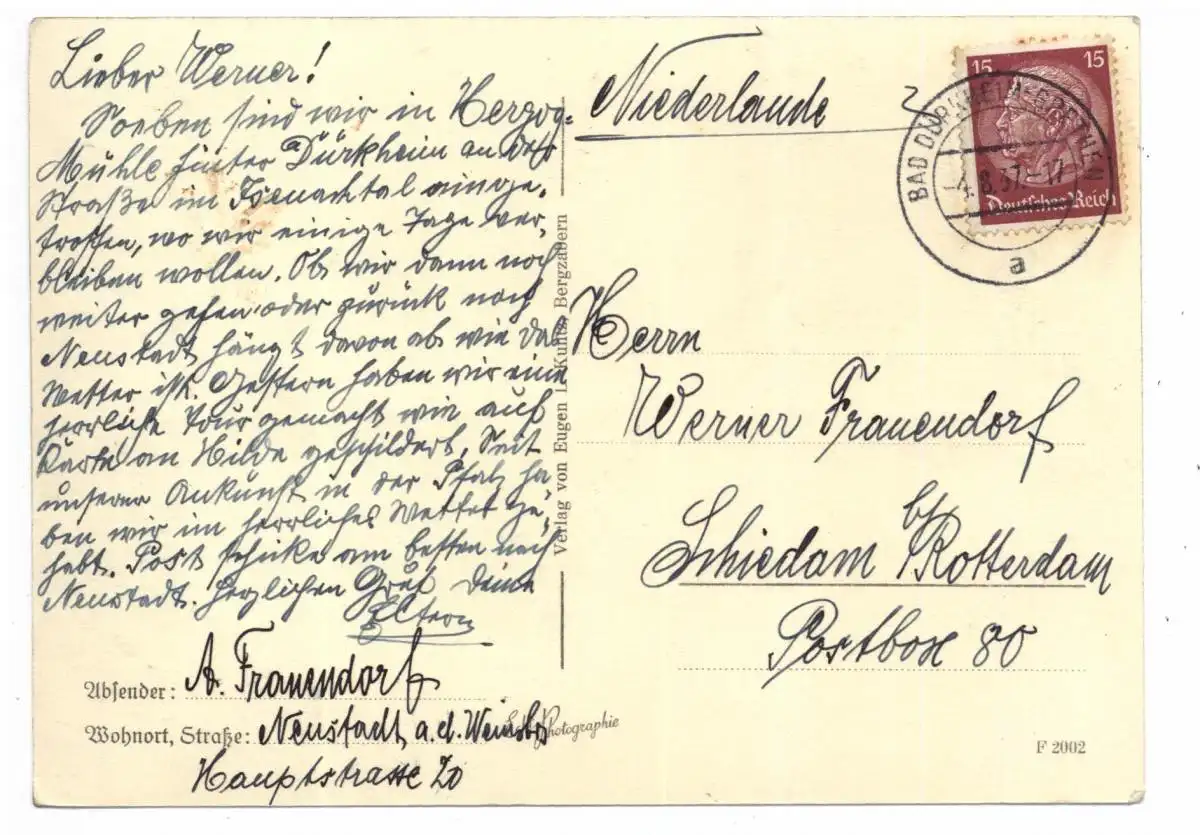 Lieber Werner!
Soeben sind wir in Herzog-
Mühle hinter Dürkheim an der
Straße im Isenachtal einge-
troffen, wo wir einige Tage ver-
bleiben wollen. Ob wir dann noch
weiter gehen oder zurück nach
Neustadt hängt davon ab wie das
Wetter ist. Gestern haben wir eine
herrliche Tour gemacht wie auf
Karte an Hilde geschildert. Seit
unserer Ankunft in der Pfalz ha
ben wir im herrliches Wetter ge-
habt. Post schicke am besten nach
Neustadt. Herzlichen Gruß Deine
Eltern
Absender: A. Frauendorf
Wohnort, Straße: Neustadt a.d. Weinstr
Hauptstrasse 20
Verlag von Eugen Kuntz Bergzabern
Photographie
Niederlande
15 15
Deutsches Reich
BAD DÜRKHEIM-GRETHEN
-4.8.37.-17
a
Herrn
Werner Frauendorf
Schiedam b/Rotterdam
Postbox 80
F 2002